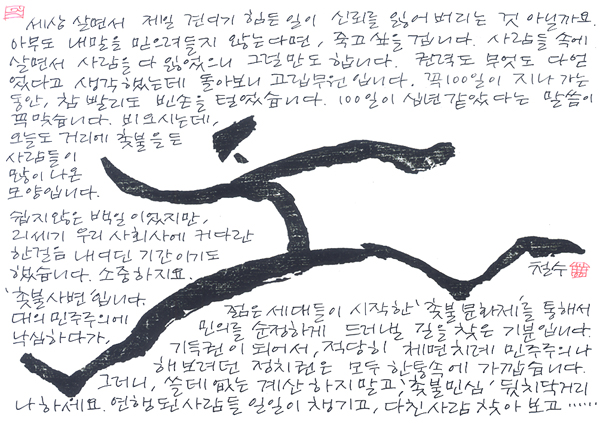 세상 살면서 제일 견디기 힘든 일이 신뢰를 잃어버리는 것 아닐까요.
아무도 내말을 믿으려들지 않는다면, 죽고 싶을 겝니다. 사람들 속에
살면서 사람을 다 잃었으니 그럴만도 합니다. 권력도 무엇도 다 얻
었다고 생각했는데 돌아보니 고립무원입니다. 꼭 100일이 지나가는
동안, 참 빨리도 빈손을 털었습니다. 100일이 십년 같았다는 말씀이
꼭맞습니다. 비 오시는데,
오늘도 거리에 촛불을 든
사람들이
많이 나온
모양입니다.
쉽지않은 백일이었지만,
21세기 우리 사회사에 커다란
한걸음 내어딛는 기간이기도
했습니다. 소중하지요.
'촛불사변'입니다.
대의 민주주의에
낙심하다가,
젊은 세대들이 시작한 '촛불문화제'를 통해서
민의를 순정하게 드러낼 길을 찾은 기분입니다.
기득권이 되어서, 적당히 체면치레 민주주의나
해보려던 정치권은 모두 한통속에 가깝습니다.
그러니, 쓸데없는 계산 하지말고, '촛불민심' 뒷치닥거리
나 하세요. 연행된 사람들 일일이 챙기고, 다친 사람 찾아보고……
철수